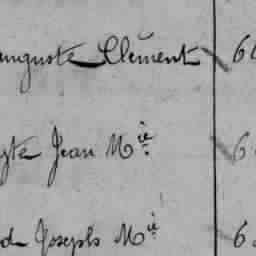 auguste Clément 6
yte Jean Mie 6
d Joseph Mie 6